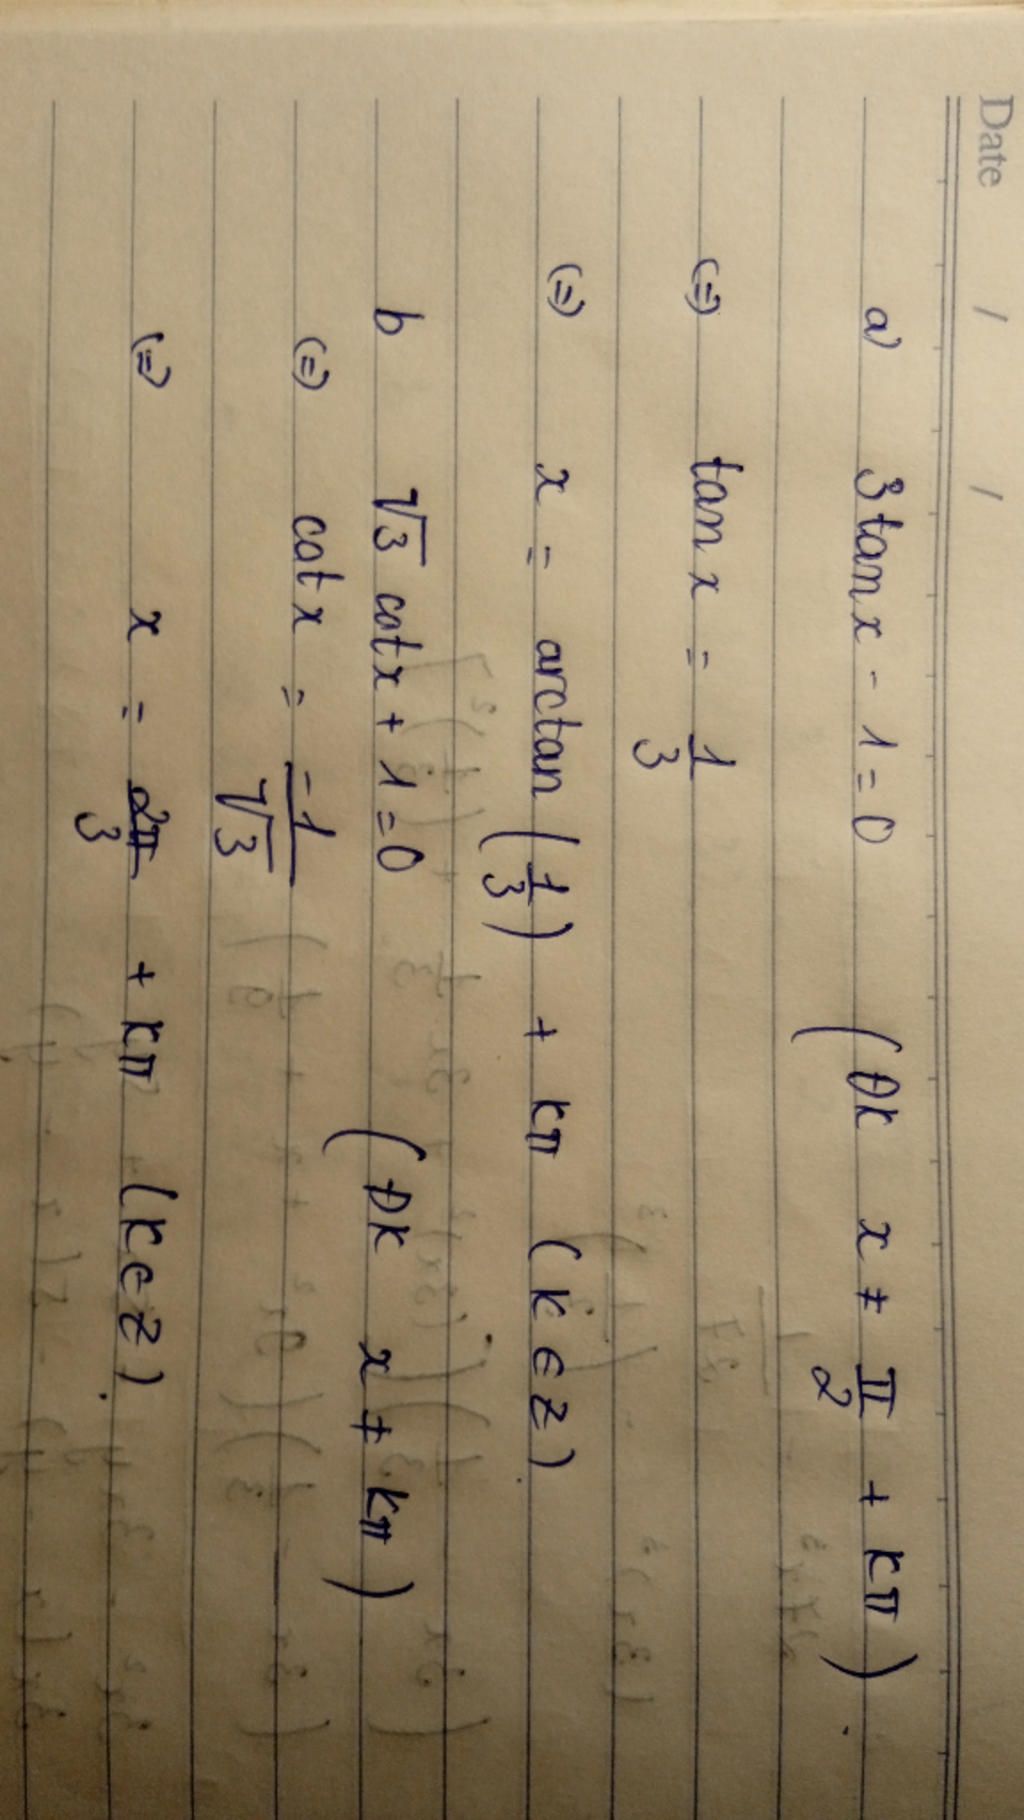 Date / /
a) 3tanx - 1 = 0 (ĐK x ≠ π/2 + kπ)
(=) tan x = 1/3
(=) x = arctan (1/3) + kπ (k ∈ Z)
b √3 cotx + 1 = 0 (ĐK x ≠ kπ)
(=) cot x = -1/√3
(=) x = 2π/3 + kπ (k ∈ Z).